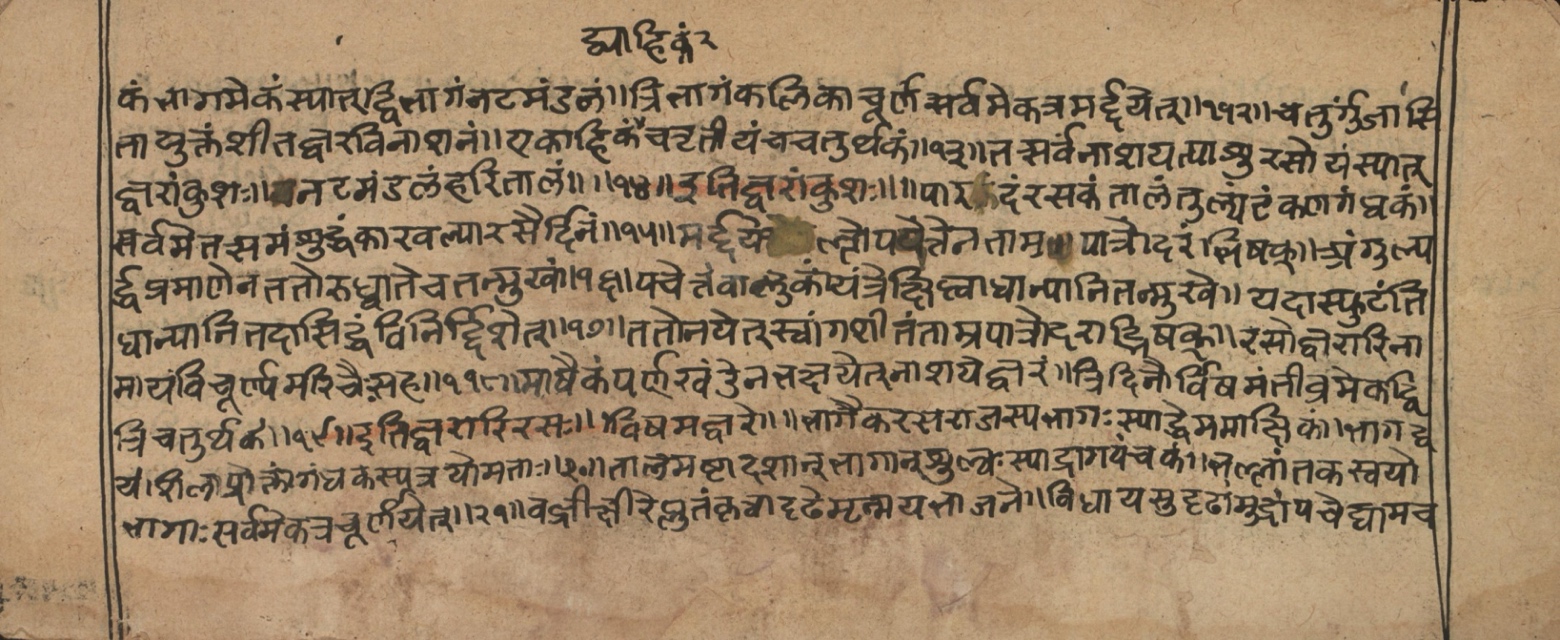 द्व्याहिकं २
कं भागमेकं स्यात् द्विभागं नटमंडलं॥ त्रिभागं कलिकाचूर्णं सर्वमेकत्र मर्द्दयेत्॥१२॥ चतुर्गुंजासि
तायुक्तं शीतज्वरविनाशनं॥ एकाहिकं च तृतीयं च चतुर्थकं॥१३॥ तत्सर्वं नाशयत्याशु रसोयं स्यात्
ज्वरांकुशः॥ नटमंडलं हरितालं॥॥१४॥ इति ज्वरांकुशः॥॥ पारदं रसकं तालं तुल्यं टंकणगंधकं॥
सर्वमेतत्समं शुद्धं कारवल्या रसैर्दिनं॥१५॥ मर्द्दये ल्लेपयेत्तेन ताम्र पात्रोदरं भिषक्॥ अंगुल्य
र्द्धप्रमाणेन ततो रुध्वा तेच तन्मुखं॥१६॥ पचेत्तं वालुकायंत्रे क्षिप्त्वा धान्यानि तन्मुखे॥ यदा स्फुटंति
धान्यानि तदा सिद्धं विनिर्द्दिशेत्॥१७॥ ततो नयेत् स्वांगशीतं ताम्रपात्रोदराद्भिषक्॥ रसो ज्वरारिना
मायं विचूर्ण्य मरिचैः सह॥१८॥ माषैकं पर्णखंडेन भक्षयेत् नाशयेज्ज्वरं॥ त्रिदिनैर्विषमं तीव्रमेकद्वि
त्रिचतुर्थकं॥१९॥ इति ज्वरारिरसः॥ विषमज्वरे॥॥ भागैकरसराजस्य भागः स्याद्धेममाक्षिकं॥ भागद्व
यं शिला प्रोक्तं गंधकस्य त्रयो मताः॥२०॥ तालमष्टादशान् भागान् शुल्वः स्याद्भागपंचकं॥ भल्लातकस्त्रयो
भागाः सर्वमेकत्र चूर्णयेत्॥२१॥ वज्रीक्षीरे प्लुतं कृत्वा दृढे मृन्मयभाजने॥ विधाय सुदृढां मुद्रां पचेद्यामच